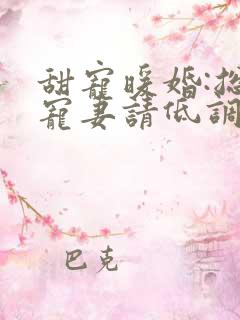 甜寵暖婚:總
寵妻請低調
巴克